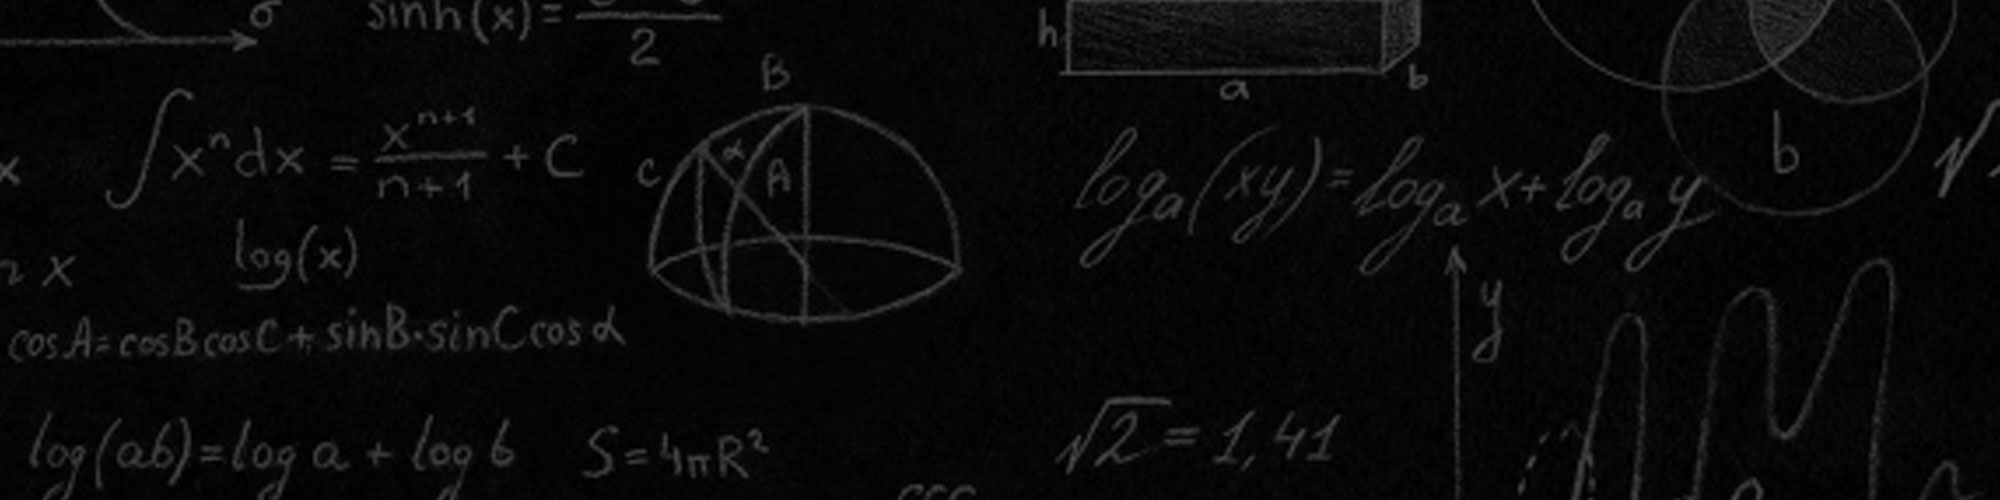 σ
sinh(x) =
2
h
a
b
B
∫xⁿdx = xⁿ⁺¹/n+1 + C
C
α
A
x
logₐ(xy)=logₐ x+logₐ y
b
log(x)
x
y
cosA=cosBcosC+sinB·sinCcosα
log(ab)=log a + log b
S=4πR²
√2=1,41